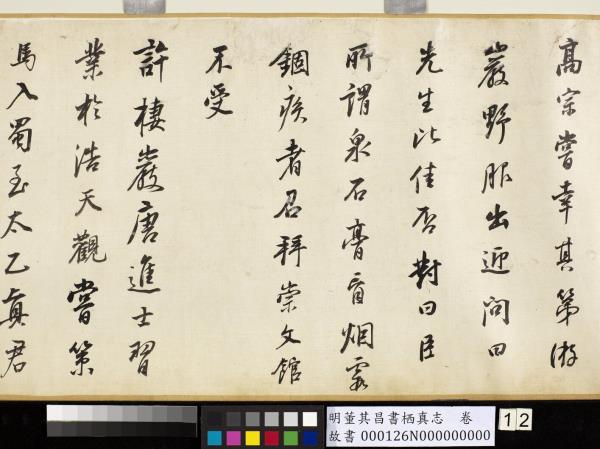 高宗嘗幸其第游
巖野服出迎問曰
先生比佳否對曰臣
所謂泉石膏肓烟霞
錮疾者召拜崇文館
不受
許棲巖唐進士習
業於浩天觀嘗策
馬入蜀至太乙真君
明董其昌書栖真志　卷
故書 000126N000000000
12